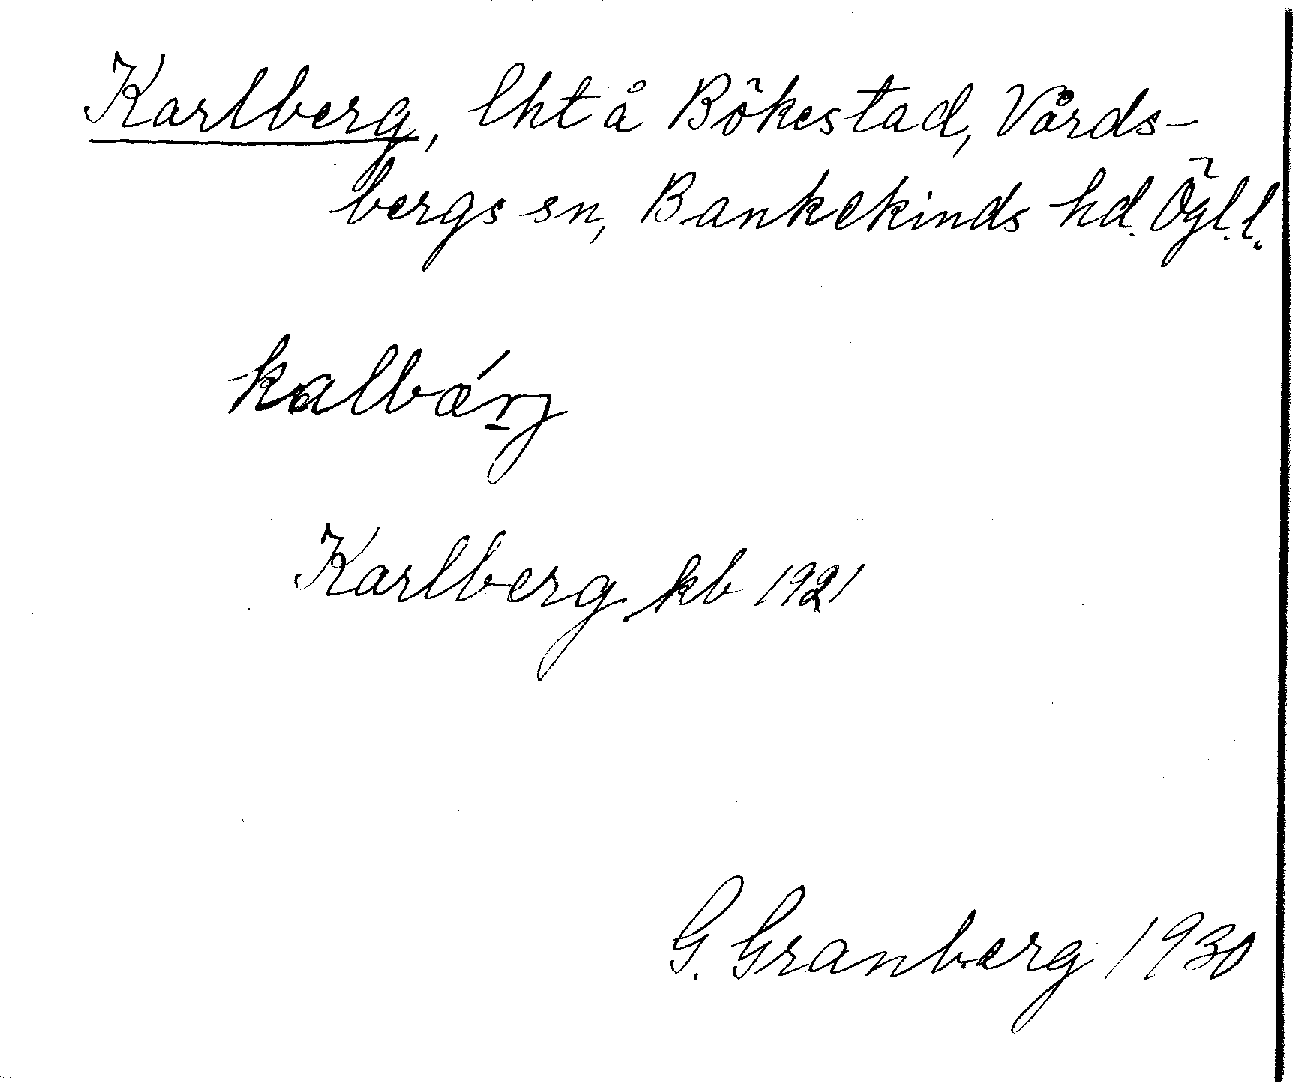 Karlberg, lht å Bökestad, Vårds-
bergs sn, Bankekinds hd. Ögl.l.
kalbæ´rj
Karlberg kb 1921
G. Granberg 1930